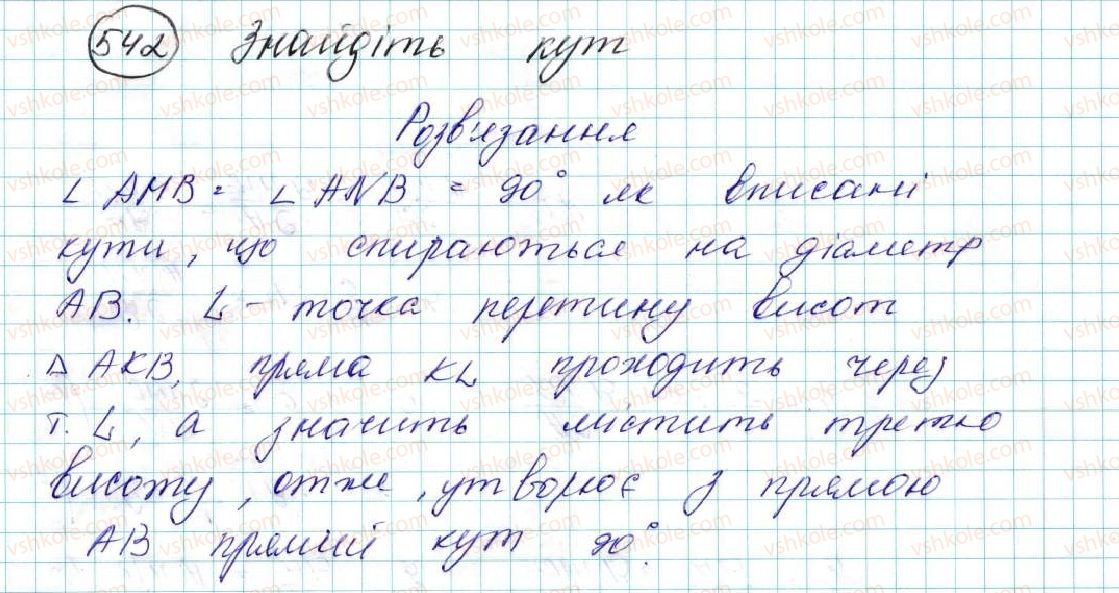 542 Знайдіть кут
Розв'язання
∠ AMB = ∠ ANB = 90° як вписані
кути, що спираються на діаметр
AB. L - точка перетину висот
Δ AKB, пряма KL проходить через
т. L, а значить містить третю
висоту, отже, утворює з прямою
AB прямий кут 90°.